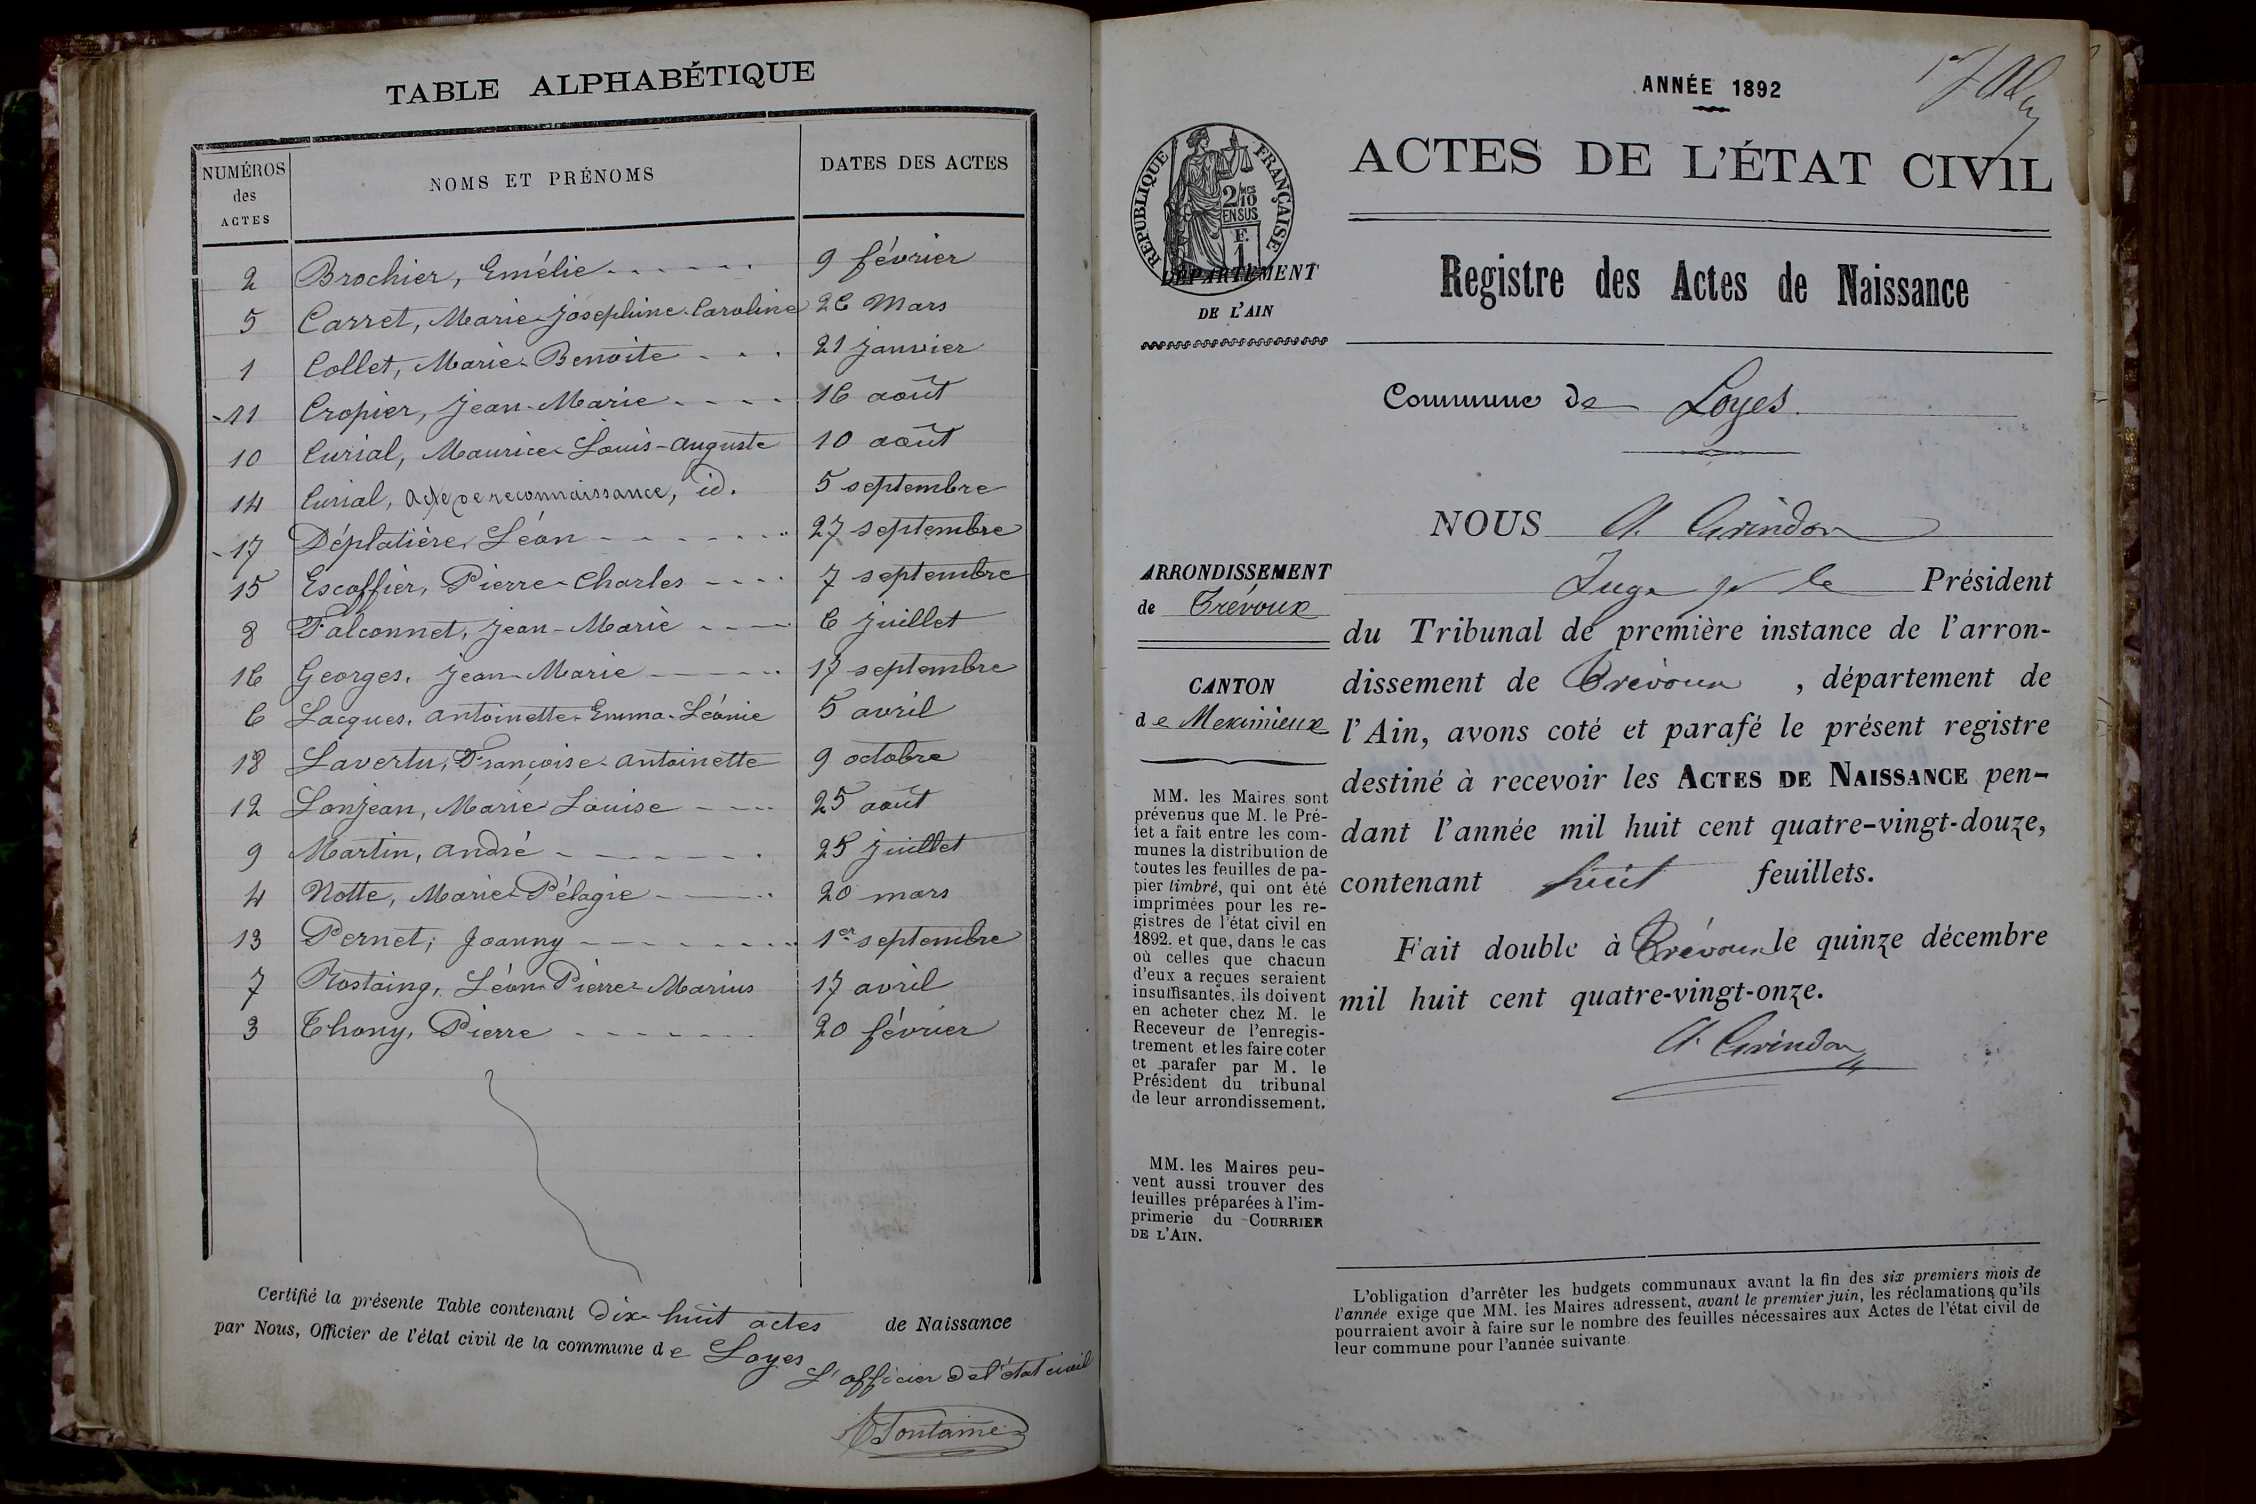 TABLE ALPHABÉTIQUE
NUMÉROS des ACTES | NOMS ET PRÉNOMS | DATES DES ACTES
2 Brochier, Emélie 9 février
5 Carret, Marie-Joséphine-Caroline 26 Mars
1 Collet, Marie-Benoite 21 janvier
11 Cropier, Jean-Marie 16 août
10 Curial, Maurice-Louis-Auguste 10 août
14 Curial, acte de reconnaissance, id. 5 septembre
17 Déplatière, Léon 27 septembre
15 Escoffier, Pierre-Charles 7 septembre
8 Falconnet, Jean-Marie 6 juillet
16 Georges, Jean-Marie 17 septembre
6 Lacques, Antoinette-Emma-Léonie 5 avril
18 Lavertu, Françoise-Antoinette 9 octobre
12 Lonjean, Marie Louise 25 août
9 Martin, André 25 juillet
4 Notte, Marie-Pélagie 20 mars
13 Pernet, Joanny 1er septembre
7 Rostaing, Léon-Pierre-Marius 17 avril
3 Thony, Pierre 20 février
Certifié la présente Table contenant dix-huit actes de Naissance
par Nous, Officier de l'état civil de la commune de Loyes
L'officier de l'état civil
Fontaine
ANNÉE 1892
ACTES DE L'ÉTAT CIVIL
RÉPUBLIQUE FRANÇAISE
2/10 EN SUS
F.
1
DÉPARTEMENT
DE L'AIN
Registre des Actes de Naissance
Commune de Loyes.
ARRONDISSEMENT
de Trévoux
CANTON
de Meximieux
MM. les Maires sont
prévenus que M. le Pré-
fet a fait entre les com-
munes la distribution de
toutes les feuilles de pa-
pier timbré, qui ont été
imprimées pour les re-
gistres de l'état civil en
1892. et que, dans le cas
où celles que chacun
d'eux a reçues seraient
insuffisantes, ils doivent
en acheter chez M. le
Receveur de l'enregis-
trement et les faire coter
et parafer par M. le
Président du tribunal
de leur arrondissement.
MM. les Maires peu-
vent aussi trouver des
feuilles préparées à l'im-
primerie du COURRIER
DE L'AIN.
NOUS A. Grindon
Juge pr le Président
du Tribunal de première instance de l'arron-
dissement de Trévoux, département de
l'Ain, avons coté et parafé le présent registre
destiné à recevoir les ACTES DE NAISSANCE pen-
dant l'année mil huit cent quatre-vingt-douze,
contenant huit feuillets.
Fait double à Trévoux le quinze décembre
mil huit cent quatre-vingt-onze.
A. Grindon
L'obligation d'arrêter les budgets communaux avant la fin des six premiers mois de
l'année exige que MM. les Maires adressent, avant le premier juin, les réclamations qu'ils
pourraient avoir à faire sur le nombre des feuilles nécessaires aux Actes de l'état civil de
leur commune pour l'année suivante